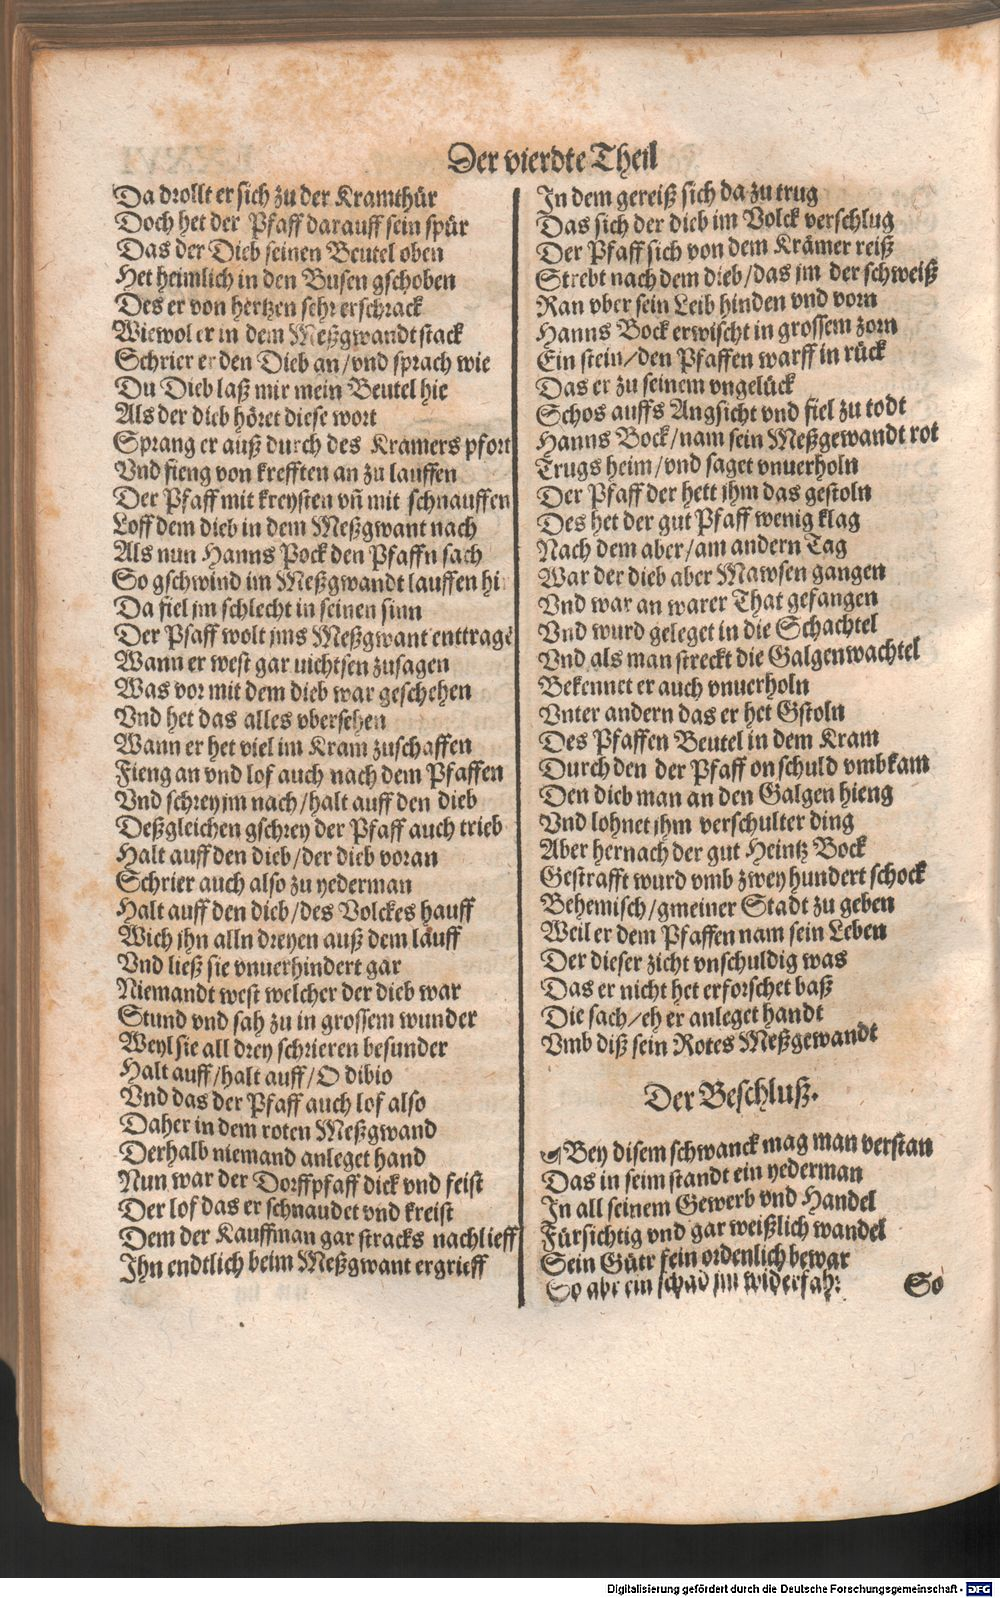 Der vierdte Theil
Da drollt er sich zu der Kramthür
Doch het der Pfaff darauff sein spür
Das der Dieb seinen Beutel oben
Het heimlich in den Busen gschoben
Des er von hertzen sehr erschrack
Wiewol er in dem Meßgwandt stack
Schrier er den Dieb an/vnd sprach wie
Du Dieb laß mir mein Beutel hie
Als der dieb höret diese wort
Sprang er auß durch des Kramers pfort
Vnd fieng von krefften an zu lauffen
Der Pfaff mit kreysten vñ mit schnauffen
Loff dem dieb in dem Meßgwant nach
Als nun Hanns Pock den Pfaffn sach
So gschwind im Meßgwandt lauffen hi
Da fiel jm schlecht in seinen sinn
Der Pfaff wolt jms Meßgwant enttragē
Wann er west gar nichtsen zusagen
Was vor mit dem dieb war geschehen
Vnd het das alles vbersehen
Wann er het viel im Kram zuschaffen
Fieng an vnd lof auch nach dem Pfaffen
Vnd schrey jm nach/halt auff den dieb
Deßgleichen gschrey der Pfaff auch trieb
Halt auff den dieb/der dieb voran
Schrier auch also zu yederman
Halt auff den dieb/des Volckes hauff
Wich jhn alln dreyen auß dem läuff
Vnd ließ sie vnuerhindert gar
Niemandt west welcher der dieb war
Stund vnd sah zu in grossem wunder
Weyl sie all drey schrieren besunder
Halt auff/halt auff/O dibio
Vnd das der Pfaff auch lof also
Daher in dem roten Meßgwand
Derhalb niemand anleget hand
Nun war der Dorffpfaff dick vnd feist
Der lof das er schnaudet vnd kreist
Dem der Kauffman gar stracks nachlieff
Jhn endtlich beim Meßgwant ergrieff
Jn dem gereiß sich da zu trug
Das sich der dieb im Volck verschlug
Der Pfaff sich von dem Krämer reiß
Strebt nach dem dieb/das jm der schweiß
Ran vber sein Leib hinden vnd vorn
Hanns Bock erwischt in grossem zorn
Ein stein/den Pfaffen warff in rück
Das er zu seinem vngelück
Schos auffs Angsicht vnd fiel zu todt
Hanns Bock/nam sein Meßgewandt rot
Trugs heim/vnd saget vnuerholn
Der Pfaff der hett jhm das gestoln
Des het der gut Pfaff wenig klag
Nach dem aber/am andern Tag
War der dieb aber Mawsen gangen
Vnd war an warer That gefangen
Vnd wurd geleget in die Schachtel
Vnd als man streckt die Galgenwachtel
Bekennet er auch vnuerholn
Vnter andern das er het Gstoln
Des Pfaffen Beutel in dem Kram
Durch den der Pfaff on schuld vmbkam
Den dieb man an den Galgen hieng
Vnd lohnet jhm verschulter ding
Aber hernach der gut Heintz Bock
Gestrafft wurd vmb zwey hundert schock
Behemisch/gmeiner Stadt zu geben
Weil er dem Pfaffen nam sein Leben
Der dieser zicht vnschuldig was
Das er nicht het erforschet baß
Die sach/eh er anleget handt
Vmb diß sein Rotes Meßgewandt
Der Beschluß.
Bey disem schwanck mag man verstan
Das in seim standt ein yederman
Jn all seinem Gewerb vnd Handel
Fürsichtig vnd gar weißlich wandel
Sein Gütr fein ordenlich bewar
So abr ein schad jm widerfahr
So
Digitalisierung gefördert durch die Deutsche Forschungsgemeinschaft - DFG